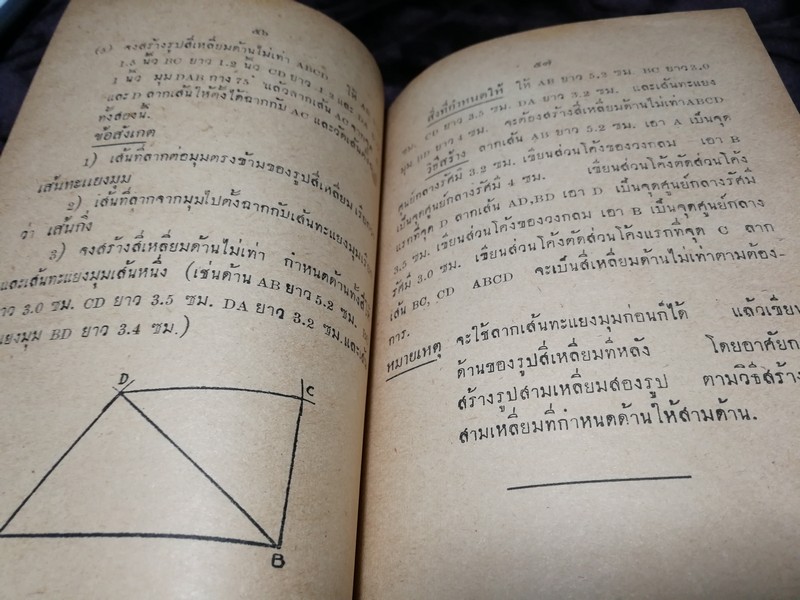 ๕๖
(๕) จงสร้างรูปสี่เหลี่ยมด้านไม่เท่า ABCD ให้
1.5 นิ้ว BC ยาว 1.2 นิ้ว CD ยาว
1 นิ้ว มุม DAB กาง 75° แล้วลากเส้น AC
และ D ลากเส้นให้ตั้งได้ฉากกับ AC และวัดเส้น
ทั้งสองนั้น
ข้อสังเกต
1) เส้นที่ลากต่อมุมตรงข้ามของรูปสี่เหลี่ยม
เส้นทะแยงมุม
2) เส้นที่ลากจากมุมไปตั้งฉากกับเส้นทะแยงมุม
ว่า เส้นกิ่ง
3) จงสร้างสี่เหลี่ยมด้านไม่เท่า กำหนดด้านทั้งสี่
และเส้นทะแยงมุมเส้นหนึ่ง (เช่นด้าน AB ยาว 5.2 ซม.
3.0 ซม. CD ยาว 3.5 ซม. DA ยาว 3.2 ซม.
มุม BD ยาว 3.4 ซม.)
D
C
B
๕๗
สิ่งที่กำหนดให้ ให้ AB ยาว 5.2 ซม. BC ยาว 3.0
ซม. CD ยาว 3.5 ซม. DA ยาว 3.2 ซม. และเส้นทะแยง
มุม BD ยาว 4 ซม. จะต้องสร้างสี่เหลี่ยมด้านไม่เท่า ABCD
วิธีสร้าง ลากเส้น AB ยาว 5.2 ซม. เอา A เป็นจุด
ศูนย์กลางรัศมี 3.2 ซม. เขียนส่วนโค้งของวงกลม เอา B
เป็นจุดศูนย์กลางรัศมี 4 ซม. เขียนส่วนโค้งตัดส่วนโค้ง
แรกที่จุด D ลากเส้น AD,BD เอา D เป็นจุดศูนย์กลางรัศมี
3.5 ซม. เขียนส่วนโค้งของวงกลม เอา B เป็นจุดศูนย์กลาง
รัศมี 3.0 ซม. เขียนส่วนโค้งตัดส่วนโค้งแรกที่จุด C ลาก
เส้น BC, CD ABCD จะเป็นสี่เหลี่ยมด้านไม่เท่าตามต้อง-
การ.
หมายเหตุ จะใช้ลากเส้นทะแยงมุมก่อนก็ได้ แล้วเขียน
ด้านของรูปสี่เหลี่ยมทีหลัง โดยอาศัย
สร้างรูปสามเหลี่ยมสองรูป ตามวิธีสร้าง
สามเหลี่ยมที่กำหนดด้านให้สามด้าน.